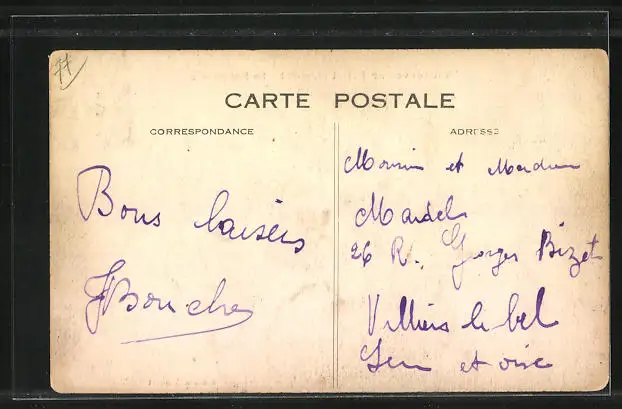 CARTE POSTALE
CORRESPONDANCE
ADRESSE
Bons baisers
Bouche
Monsieur et Madame
Mandel
26 R. Georges Bizet
Villiers le bel
Seine et oise